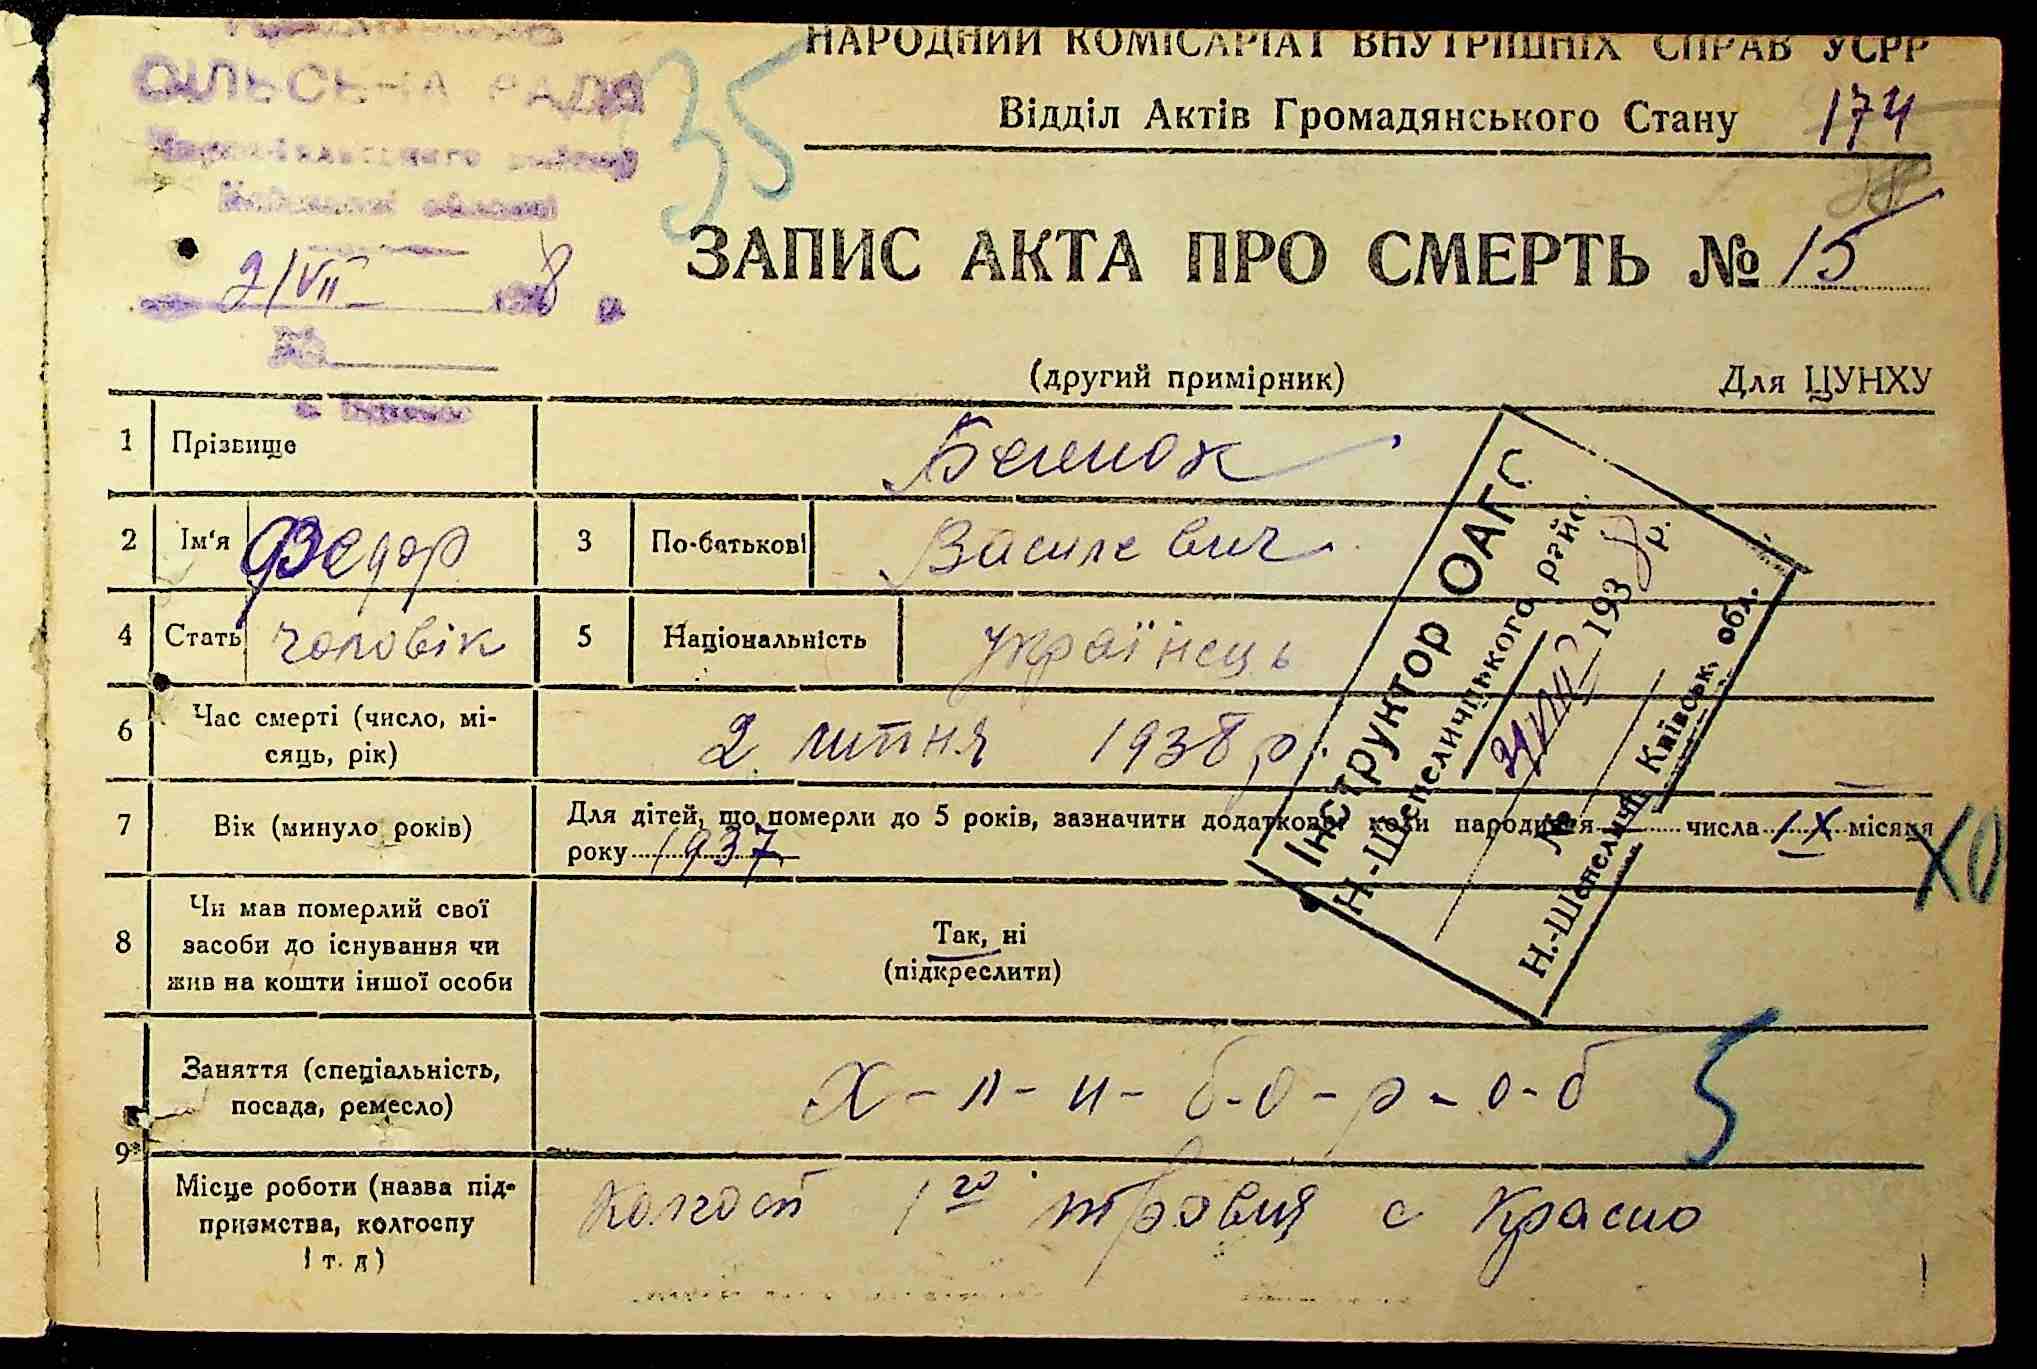 СІЛЬСЬКА РАДА
2/VII 8 р.
35
НАРОДНИЙ КОМІСАРІАТ ВНУТРІШНІХ СПРАВ УСРР
Відділ Актів Громадянського Стану 174
ЗАПИС АКТА ПРО СМЕРТЬ № 15
(другий примірник) Для ЦУНХУ
1 Прізвище
2 Ім'я Федор 3 По-батькові Василевич
4 Стать чоловік 5 Національність українець
6 Час смерті (число, місяць, рік) 2 липня 1938 р.
7 Вік (минуло років) Для дітей, що померли до 5 років, зазначити додатково, коли народився числа IX місяця
року 1937
ХО
8 Чи мав померлий свої
засоби до існування чи
жив на кошти іншої особи
Так, ні
(підкреслити)
9 Заняття (спеціальність,
посада, ремесло)
Х-л-и-б-о-р-о-б 5
Місце роботи (назва під-
приємства, колгоспу
і т. д)
Колгосп 1го травня с Красно
Інструктор ОАГС
Н.-Шепелицького рай
193 8 р.
№
Н.-Шепеличі, Київськ. обл.